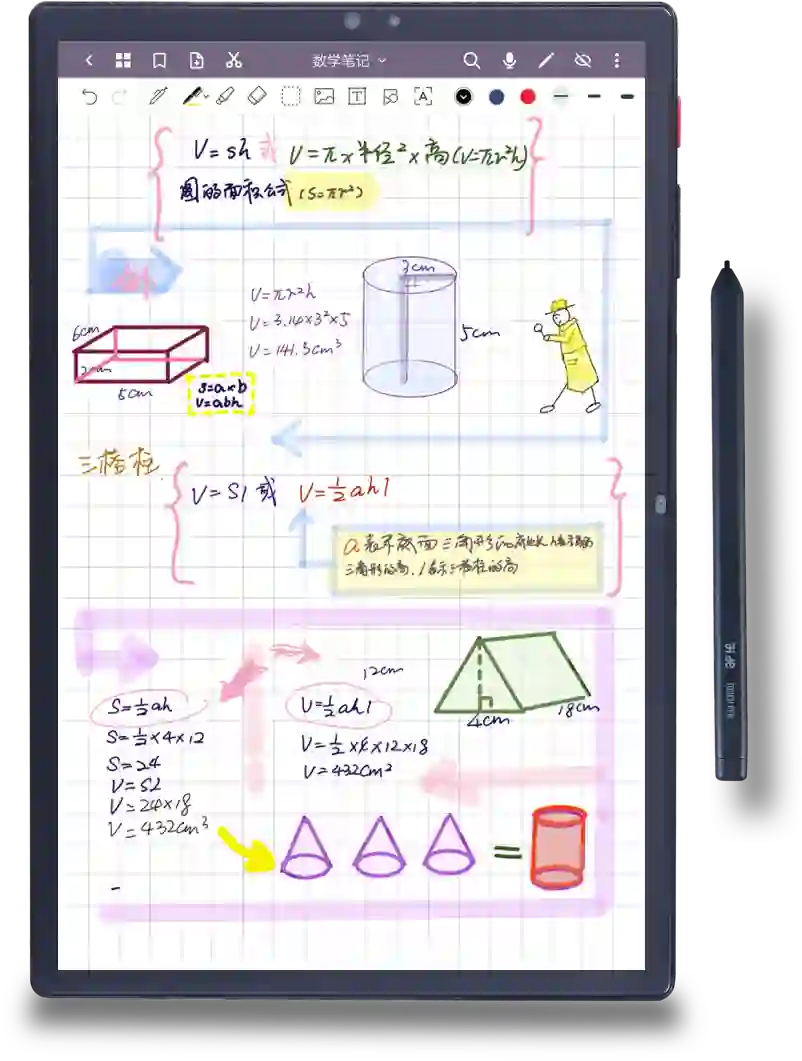 数学笔记
V=sh 或 V=π×半径²×高(V=πr²h)
圆的面积公式 (S=πr²)
例
3cm
V=πr²h
V=3.14×3²×5
V=141.3cm³
5cm
6cm
2cm
5cm
S=a×b
V=abh
三棱柱
V=Sl 或 V=½ahl
a表示底面三角形的底边长,h表示底面
三角形的高,l表示三棱柱的高
12cm
4cm
18cm
S=½ah
S=½×4×12
S=24
V=Sl
V=24×18
V=432cm³
V=½ahl
V=½×4×12×18
V=432cm³
=